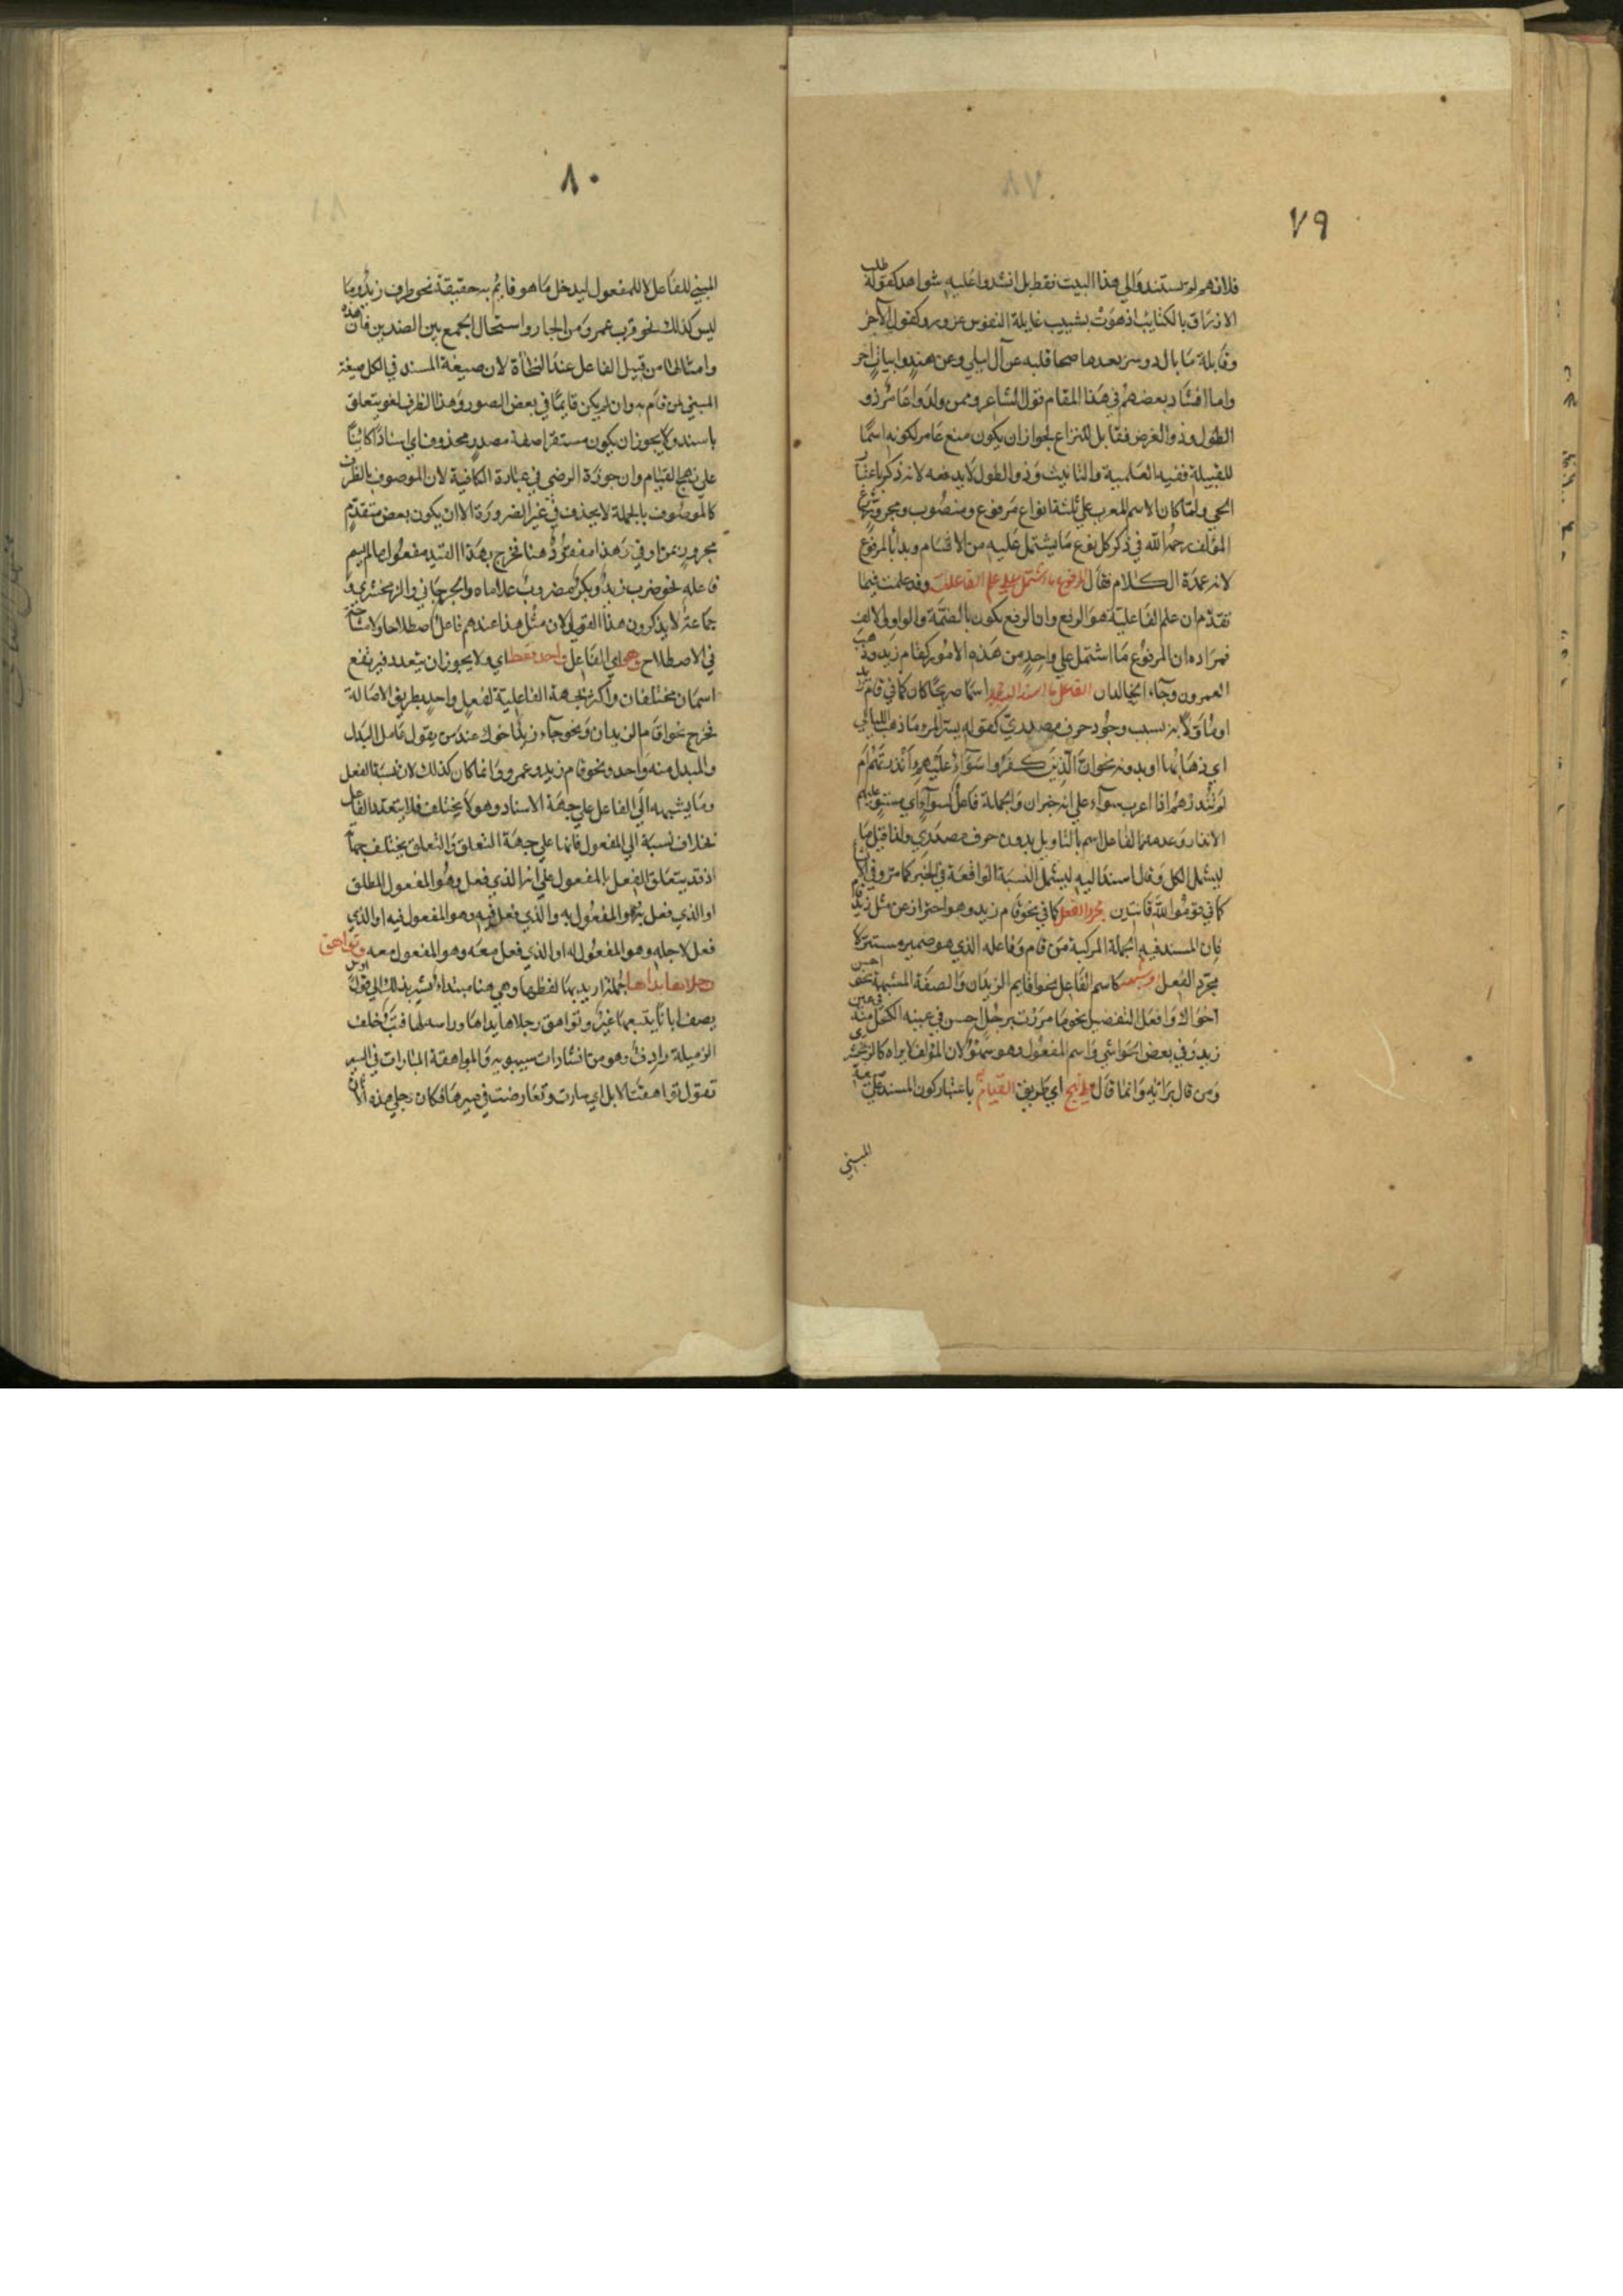 ٧٩
فلانهم لم يستندوا الي هذا البيت فقط بل انشدوا عليه شواهد كقوله طلب
الازراق بالكتايب اذ هوت بشبيب غايلة النفوس غرور وكقول الآخر
وقايلة ما بال دوسر بعدها صحا قلبه عن آل ليلي وعن هند وابيات اخر
واما انشاد بعضهم في هذا المقام قول الشاعر وممن ولدوا عامر ذو
الطول وذو العرض فقابل للنزاع لجواز ان يكون منع عامر لكونه اسما
للقبيلة ففيه العلمية والتانيث وذو الطول لا يدفعه لانه ذكر باعتبار
الحي ولما كان الاسم المعرب علي ثلثة انواع مرفوع ومنصوب ومجرور شرع
المؤلف رحمه الله في ذكر كل نوع ما يشتمل عليه من الاقسام وبدأ بالمرفوع
لانه عمدة الكلام فقال المرفوع ما اشتمل علي علم الفاعلية وقد علمت فيما
تقدم ان علم الفاعلية هو الرفع وان الرفع يكون بالضمة والواو والالف
فمراده ان المرفوع ما اشتمل علي واحد من هذه الامور كقام زيد وذهب
العمرون وجاء الخالدان الفاعل ما اسند اليه اسما صريحا كان كما في قام زيد
او مأولا به بسبب وجود حرف مصدري كقوله يسر المرء ما ذهب الليالي
اي ذهابها او بدونه نحو ان الذين كفروا سواء عليهم ءانذرتهم ام
لم تنذرهم اذا اعرب سواء علي انه خبر ان والجملة فاعل لسواء اي مستو عليهم
الانذار وعدمه فالفاعل اسم بالتاويل بدون حرف مصدري ولذا قيل ما
ليشمل الكل وقال اسند اليه ليشمل النسبة الواقعة في الخبر كما مر وفي الانشاء
كما في قوموا لله قانتين مجرد الفعل كما في نحو قام زيد وهو احتراز عن مثل زيد قام
فان المسند فيه الجملة المركبة من قام وفاعله الذي هو ضمير مستتر لا
مجرد الفعل وشبهه كاسم الفاعل نحو اقايم الزيدان والصفة المشبهة نحو احسن
اخواك وافعل التفضيل نحو ما مررت برجل احسن في عينه الكحل منه في عين
زيد وفي بعض الحواشي واسم المفعول وهو سهو لان المؤلف لا يراه كالزمخشري
ومن قال برايه وانما قال علي نهج اي طريق القيام به باعتبار كون المسند علي صيغة
المبني
٨٠
المبني للفاعل لا للمفعول ليدخل ما هو قايم به حقيقة نحو ظرف زيد وما
ليس كذلك نحو قرب عمرو من الجدار واستحال الجمع بين الضدين فان هذه
وامثالها من قبيل الفاعل عند النحاة لان صيغة المسند في الكل صيغة
المبني لمن قام به وان لم يكن قايما في بعض الصور وهذا الظرف لغو يتعلق
باسند ولا يجوز ان يكون مستقرا صفة مصدر محذوف اي اسنادا كائنا
علي نهج القيام وان جوزه الرضي في عبارة الكافية لان الموصوف بالظرف
كالموصوف بالجملة لا يحذف في غير الضرورة الا ان يكون بعض متقدم
مجرور بمن او في وهذا مفقود هنا فخرج بهذا القيد مفعول ما لم يسم
فاعله نحو ضرب زيد وبكر مضروب غلاماه والجرجاني والزمخشري و
جماعة لا يذكرون هذا القيد لان مثل هذا عندهم فاعل اصطلاحا ولا مشاحة
في الاصطلاح وهو اي الفاعل واحد فقط اي ولا يجوز ان يتعدد فيرتفع
اسمان مختلفان واكثر بجهة الفاعلية لفعل واحد بطريق الاصالة
فخرج نحو اقام الزيدان ونحو جاء زيد اخوك عند من يقول عامل البدل
والمبدل منه واحد ونحو قام زيد وعمرو وانما كان كذلك لان نسبة الفعل
وما يشبهه الي الفاعل علي جهة الاسناد وهو لا يختلف فلا يتعدد الفاعل
بخلاف نسبة الي المفعول فانها علي جهة التعلق والتعلق يختلف جهاته
اذ قد يتعلق الفعل بالمفعول علي انه الذي فعل وهو المفعول المطلق
او الذي فعل به وهو المفعول به والذي فعل فيه وهو المفعول فيه او الذي
فعل لاجله وهو المفعول له او الذي فعل معه وهو المفعول معه وتواهق
رجلاها يداها جملة اريد بها لفظها وهي هنا مبتداء اشير بذلك الي قول اوس
يصف اتانا يتبعها عير وتواهق رجلاها يداها وراسه لها قتب خلف
الزميلة رادف وهو من انشادات سيبويه والمواهقة المباراة في السير
تقول تواهقت الابل اي سارت وتعارضت في سيرها فكان رجلي هذه الاتان